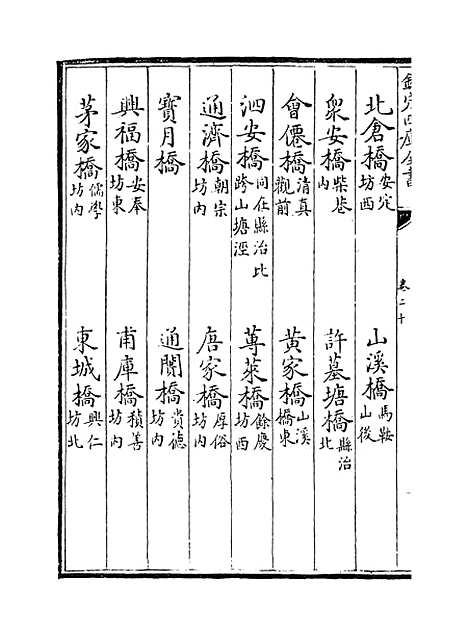 欽定四庫全書
卷二十
北倉橋安定坊西
山溪橋馬鞍山後
衆安橋柴巷内
許墓塘橋縣治北
會僊橋清真觀前
黃家橋山溪橋東
泗安橋問在縣治北跨山塘涇
蓴菜橋餘慶坊西
通濟橋朝宗坊内
唐家橋厚俗坊内
寶月橋
通闤橋賞德坊内
興福橋安奉坊東
甫庫橋積善坊内
茅家橋儒學坊内
東城橋興仁坊北